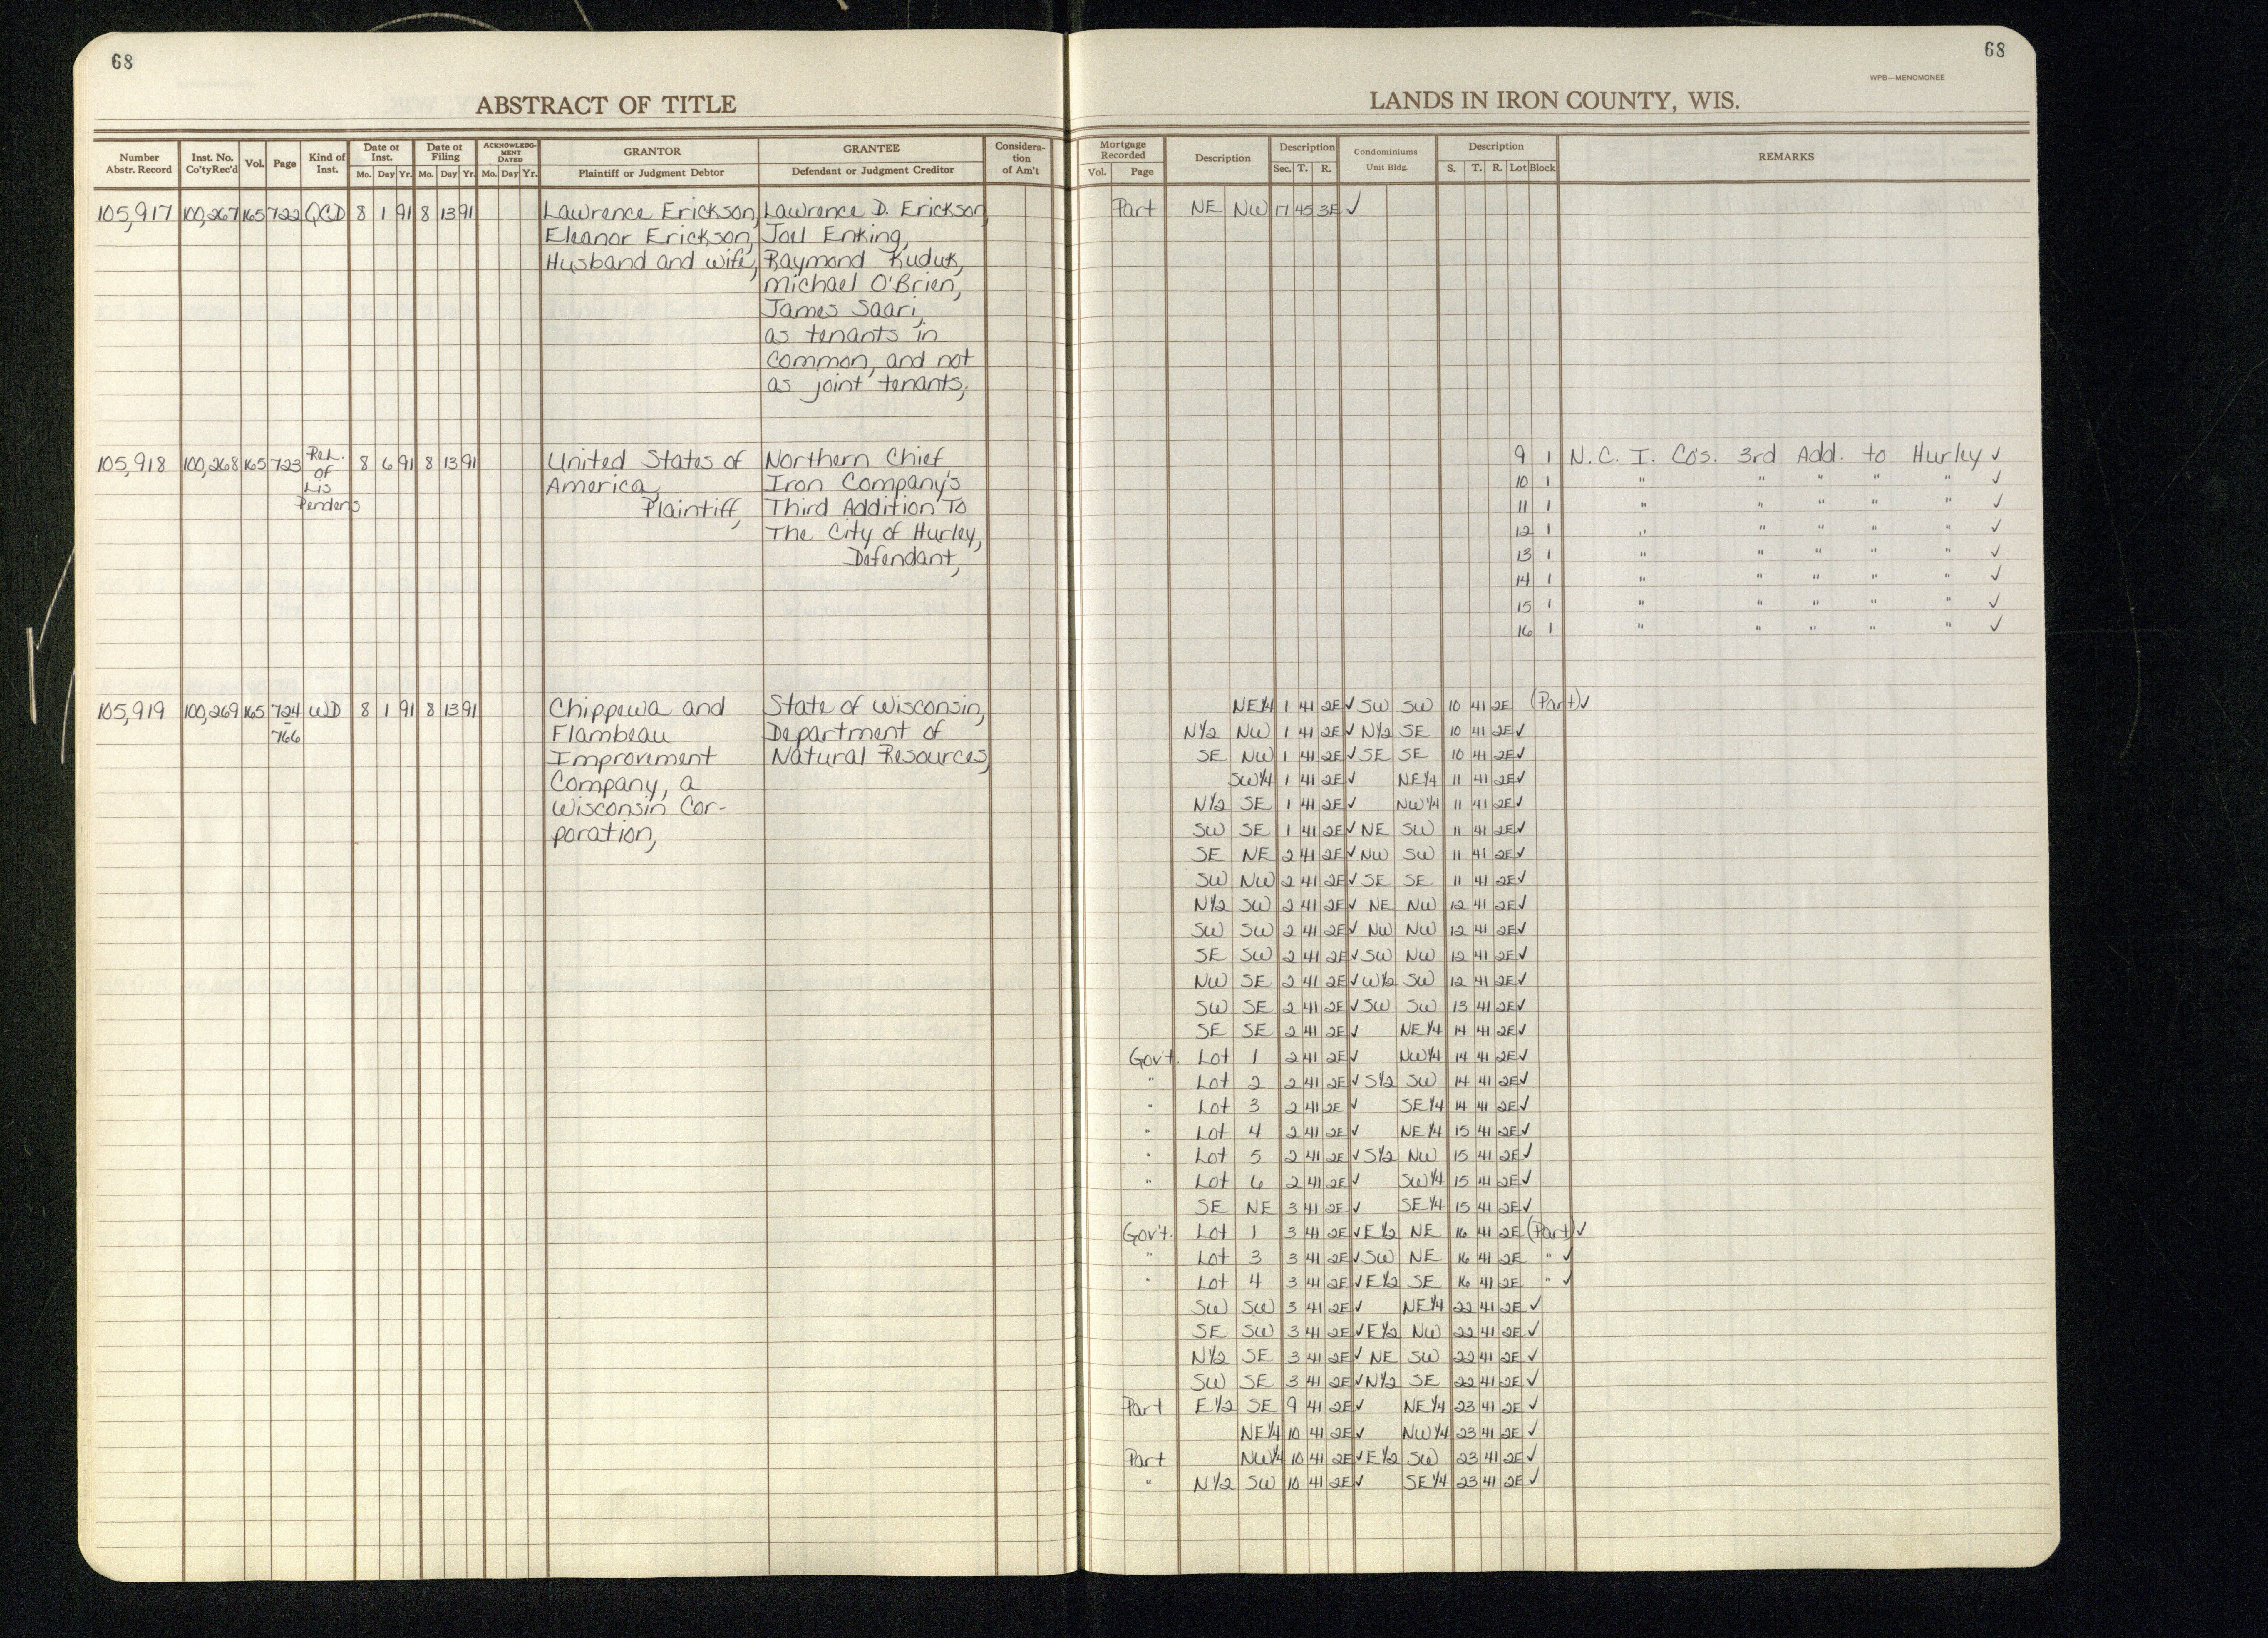 68
68
WPB—MENOMONEE
ABSTRACT OF TITLE
LANDS IN IRON COUNTY, WIS.
Number Abstr. Record Inst. No. Co'tyRec'd Vol. Page Kind of Inst. Date of Inst. Mo. Day Yr. Date of Filing Mo. Day Yr. ACKNOWLEDG-MENT DATED Mo. Day Yr. GRANTOR Plaintiff or Judgment Debtor GRANTEE Defendant or Judgment Creditor Considera-tion of Am't
Mortgage Recorded Vol. Page Description Description Sec. T. R. Condominiums Unit Bldg. Description S. T. R. Lot Block REMARKS
105,917 100,267 165 722 QCD 8 1 91 8 13 91 Lawrence Erickson, Lawrence D. Erickson, Part NE NW 17 45 3E ✓
Eleanor Erickson, Joel Enking,
Husband and wife, Raymond Kuduk,
Michael O'Brien,
James Saari,
as tenants in
common, and not
as joint tenants,
105,918 100,268 165 723 Rel. of Lis Pendens 8 6 91 8 13 91 United States of Northern Chief 9 1 N. C. I. Co's. 3rd Add. to Hurley ✓
America, Iron Company's 10 1 " " " " " ✓
Plaintiff, Third Addition To 11 1 " " " " " ✓
The City of Hurley, 12 1 " " " " " ✓
Defendant, 13 1 " " " " " ✓
14 1 " " " " " ✓
15 1 " " " " " ✓
16 1 " " " " " ✓
105,919 100,269 165 724 WD 8 1 91 8 13 91 Chippewa and State of Wisconsin, NE1/4 1 41 2E ✓ SW SW 10 41 2E (Part) ✓
766 Flambeau Department of N1/2 NW 1 41 2E ✓ N1/2 SE 10 41 2E ✓
Improvement Natural Resources, SE NW 1 41 2E ✓ SE SE 10 41 2E ✓
Company, a SW1/4 1 41 2E ✓ NE1/4 11 41 2E ✓
Wisconsin Cor- N1/2 SE 1 41 2E ✓ NW1/4 11 41 2E ✓
poration, SW SE 1 41 2E ✓ NE SW 11 41 2E ✓
SE NE 2 41 2E ✓ NW SW 11 41 2E ✓
SW NW 2 41 2E ✓ SE SE 11 41 2E ✓
N1/2 SW 2 41 2E ✓ NE NW 12 41 2E ✓
SW SW 2 41 2E ✓ NW NW 12 41 2E ✓
SE SW 2 41 2E ✓ SW NW 12 41 2E ✓
NW SE 2 41 2E ✓ W1/2 SW 12 41 2E ✓
SW SE 2 41 2E ✓ SW SW 13 41 2E ✓
SE SE 2 41 2E ✓ NE1/4 14 41 2E ✓
Gov't. Lot 1 2 41 2E ✓ NW1/4 14 41 2E ✓
" Lot 2 2 41 2E ✓ S1/2 SW 14 41 2E ✓
" Lot 3 2 41 2E ✓ SE1/4 14 41 2E ✓
" Lot 4 2 41 2E ✓ NE1/4 15 41 2E ✓
" Lot 5 2 41 2E ✓ S1/2 NW 15 41 2E ✓
" Lot 6 2 41 2E ✓ SW1/4 15 41 2E ✓
SE NE 3 41 2E ✓ SE1/4 15 41 2E ✓
Gov't. Lot 1 3 41 2E ✓ E1/2 NE 16 41 2E (Part) ✓
" Lot 3 3 41 2E ✓ SW NE 16 41 2E " ✓
" Lot 4 3 41 2E ✓ E1/2 SE 16 41 2E " ✓
SW SW 3 41 2E ✓ NE1/4 22 41 2E ✓
SE SW 3 41 2E ✓ E1/2 NW 22 41 2E ✓
N1/2 SE 3 41 2E ✓ NE SW 22 41 2E ✓
SW SE 3 41 2E ✓ N1/2 SE 22 41 2E ✓
Part E1/2 SE 9 41 2E ✓ NE1/4 23 41 2E ✓
NE1/4 10 41 2E ✓ NW1/4 23 41 2E ✓
Part NW1/4 10 41 2E ✓ E1/2 SW 23 41 2E ✓
" N1/2 SW 10 41 2E ✓ SE1/4 23 41 2E ✓